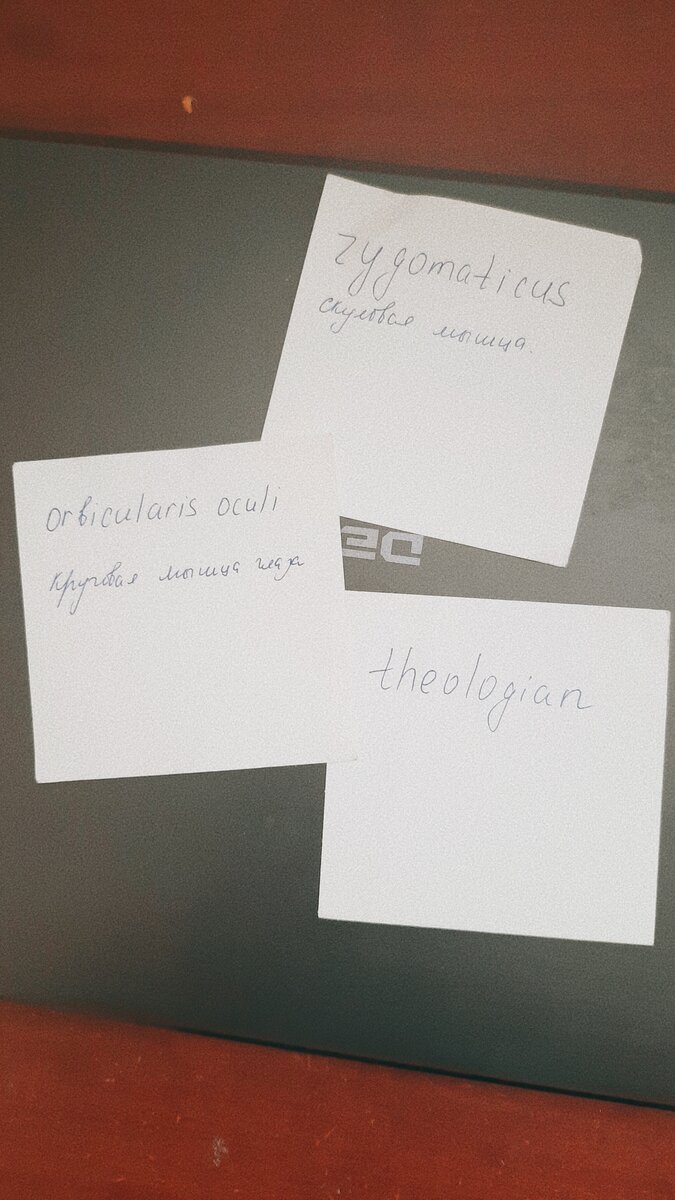 zygomaticus
скуловая мышца.
orbicularis oculi
круговая мышца глаза
theologian